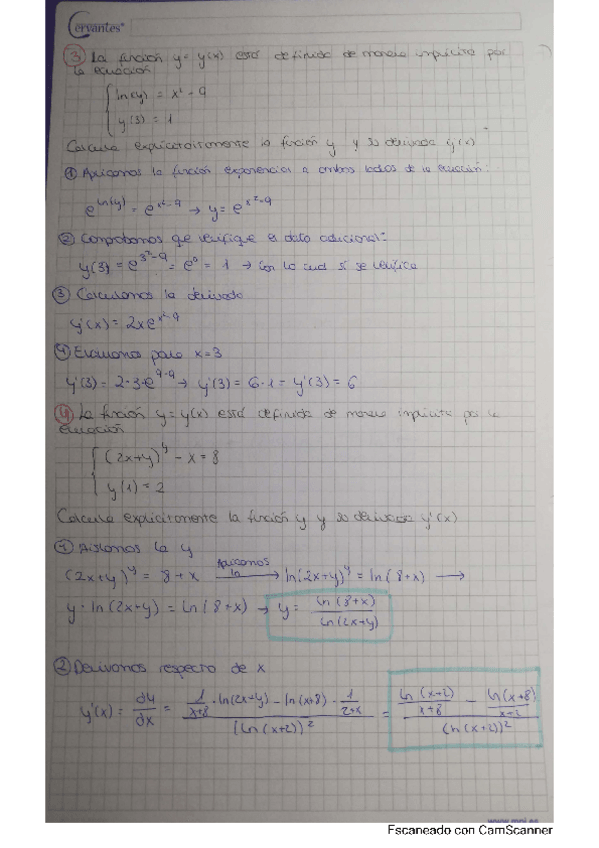 Cervantes
③ La función y = y(x) está definida de manera implícita por
la ecuación
ln(y) = x² - 9
y(3) = 1
Calcula explícitamente la función y y su derivada y'(x)
① Aplicamos la función exponencial a ambos lados de la ecuación:
e^ln(y) = e^x²-9 → y = e^x²-9
② Comprobamos que verifique el dato adicional:
y(3) = e^3²-9 = e⁰ = 1 → con lo cual sí se verifica
③ Calculamos la derivada
y'(x) = 2xe^x²-9
④ Evaluamos para x=3
y'(3) = 2·3·e^9-9 → y'(3) = 6·1 = y'(3) = 6
④ La función y = y(x) está definida de manera implícita por la
ecuación
(2x+y)^y - x = 8
y(1) = 2
Calcula explícitamente la función y y su derivada y'(x)
① Aislamos la y
(2x+y)^y = 8+x Aplicamos ln → ln(2x+y)^y = ln(8+x) →
y·ln(2x+y) = ln(8+x) → y = ln(8+x) / ln(2x+y)
② Derivamos respecto de x
y'(x) = dy/dx = (1/(x+8) · ln(2x+y) - ln(x+8) · 1/(2+x)) / (ln(x+2))² = (ln(x+2)/(x+8) - ln(x+8)/(x+2)) / (ln(x+2))²
www.mpi.es
Escaneado con CamScanner